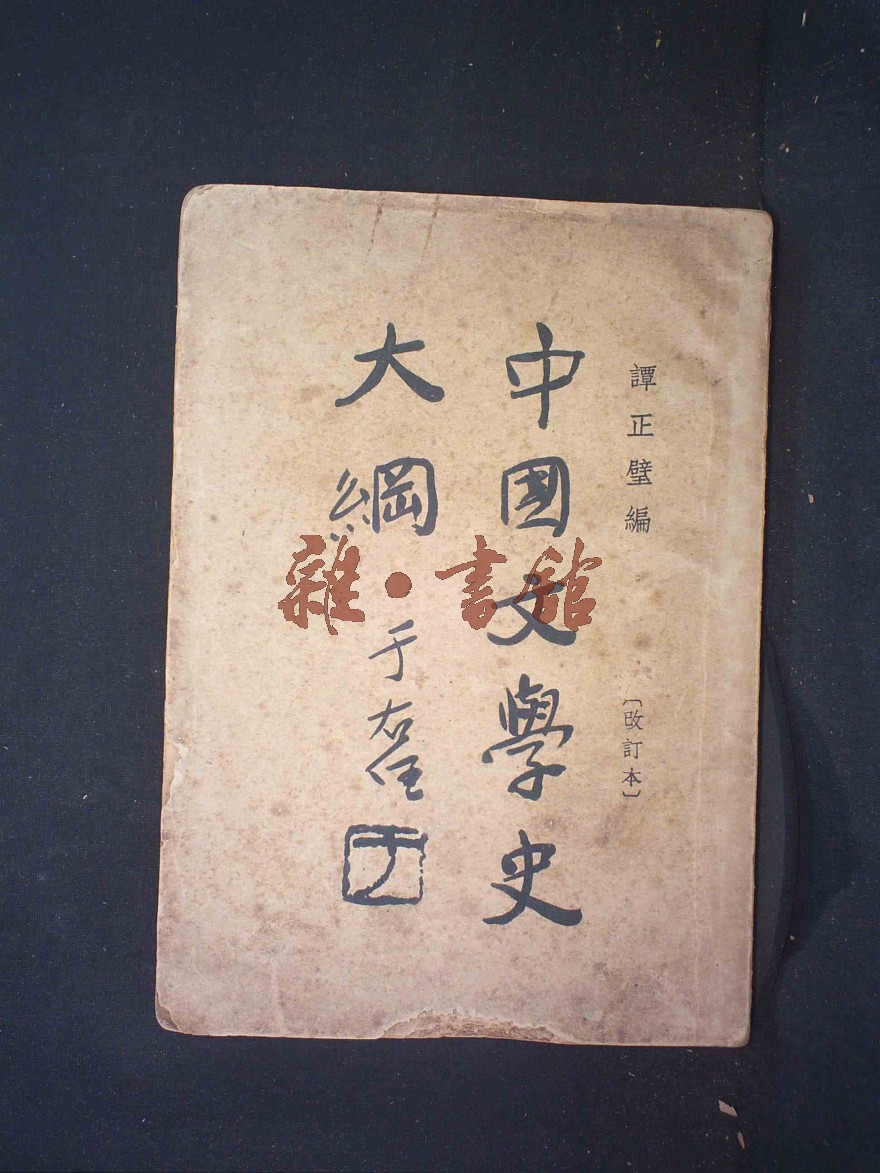 譚正璧編
〔改訂本〕
中國文學史
大綱
于右任
雜·書館